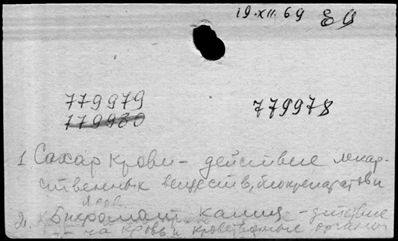 19.XII.69
779979
779980
779978
1 Сахар крови - действие лекар-
ственных веществ, биопрепаратов и
ядов.
2. Бихромат калия - действие
на кровь и кроветворные органы